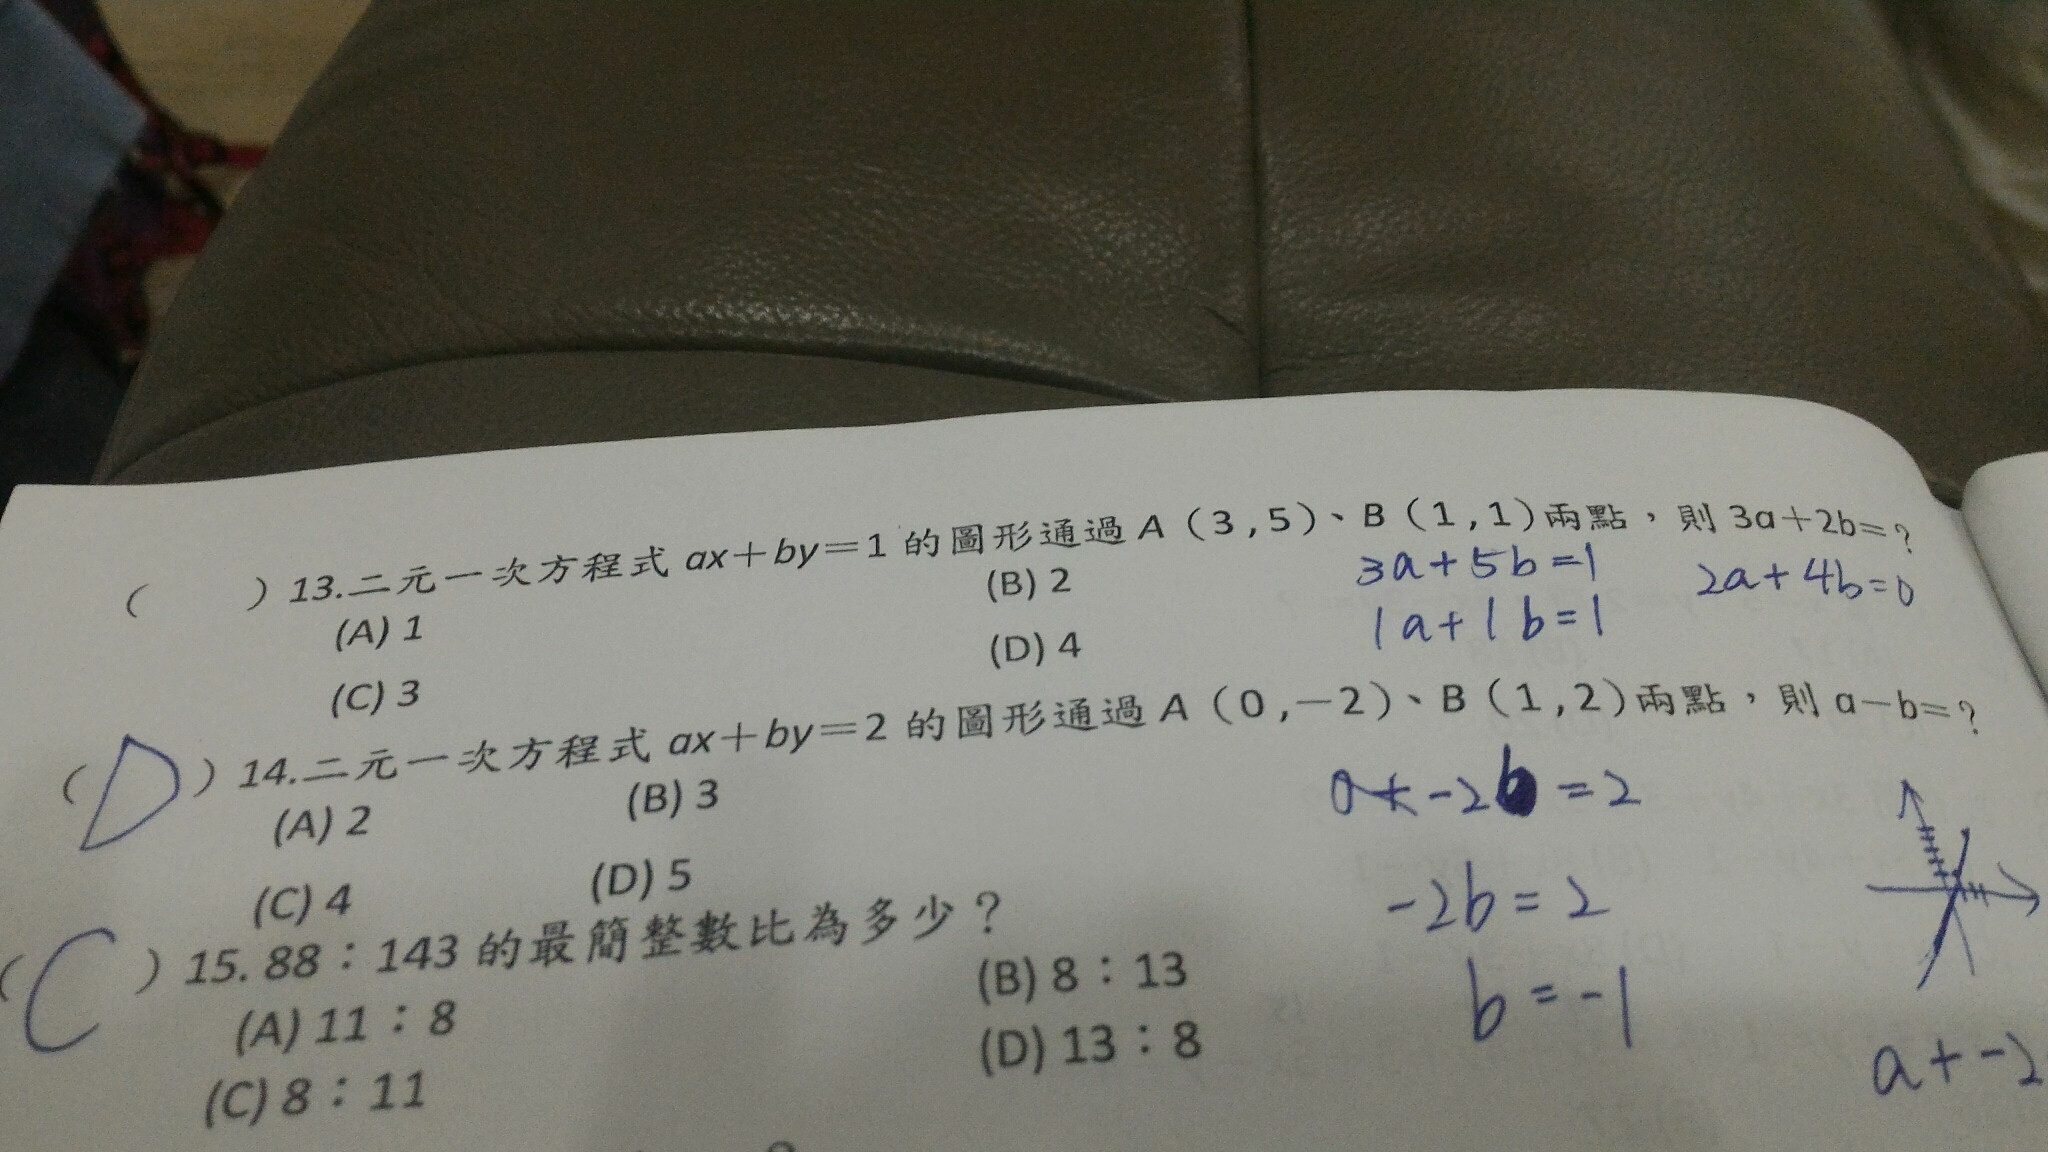 ( )13.二元一次方程式 ax+by=1 的圖形通過 A(3,5)、B(1,1)兩點,則 3a+2b=?
(A) 1 (B) 2
(C) 3 (D) 4
3a+5b=1 2a+4b=0
1a+1b=1
(D)14.二元一次方程式 ax+by=2 的圖形通過 A(0,-2)、B(1,2)兩點,則 a-b=?
(A) 2 (B) 3
(C) 4 (D) 5
-2b=2
b=-1
a+-2
(C)15. 88:143 的最簡整數比為多少?
(A) 11:8 (B) 8:13
(C) 8:11 (D) 13:8